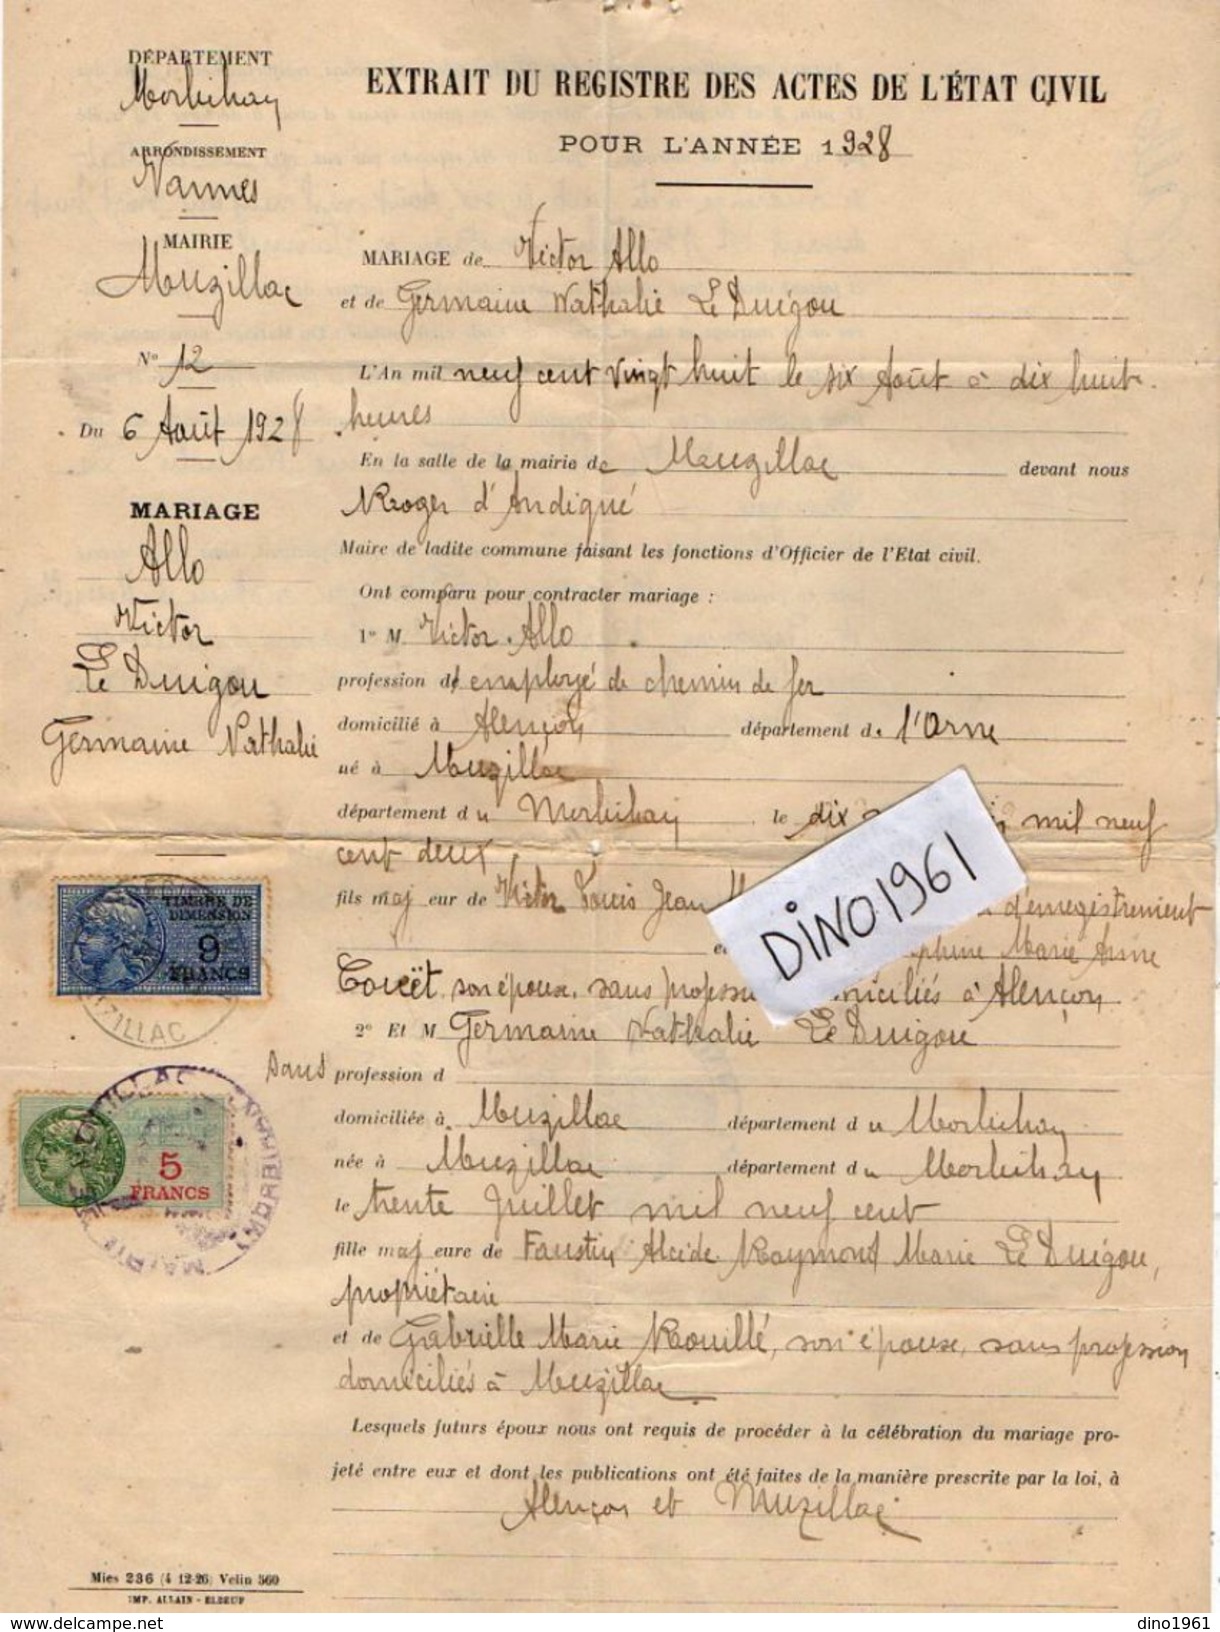 DÉPARTEMENT
Morbihan
ARRONDISSEMENT
Vannes
MAIRIE
Muzillac
No 12
Du 6 Août 1928
MARIAGE
Allo
Victor
Le Duigou
Germaine Nathalie
TIMBRE DE
DIMENSION
9
FRANCS
5
FRANCS
Mies 236 (4 12-26) Velin 560
IMP. ALLAIN - ELBEUF
EXTRAIT DU REGISTRE DES ACTES DE L'ÉTAT CIVIL
POUR L'ANNÉE 1928
MARIAGE de Victor Allo
et de Germaine Nathalie Le Duigou
L'An mil neuf cent vingt huit le six Août à dix huit
heures
En la salle de la mairie de Muzillac devant nous
Roger d'Andigné
Maire de ladite commune faisant les fonctions d'Officier de l'Etat civil.
Ont comparu pour contracter mariage :
1o M Victor Allo
profession d' employé de chemin de fer
domicilié à Alençon département de l'Orne
né à Muzillac
département du Morbihan le dix mil neuf
cent deux
fils majeur de Victor Louis Jean d'enregistrement
Marie Anne
son épouse, sans domiciliés à Alençon
2o Et M Germaine Nathalie Le Duigou
sans profession d
domiciliée à Muzillac département du Morbihan
née à Muzillac département du Morbihan
le trente Juillet mil neuf cent
fille majeure de Faustin Alcide Raymond Marie Le Duigou,
propriétaire
et de Gabrielle Marie Rouillé, son épouse, sans profession
domiciliés à Muzillac
Lesquels futurs époux nous ont requis de procéder à la célébration du mariage pro-
jeté entre eux et dont les publications ont été faites de la manière prescrite par la loi, à
Alençon et Muzillac
DINO1961
dino1961